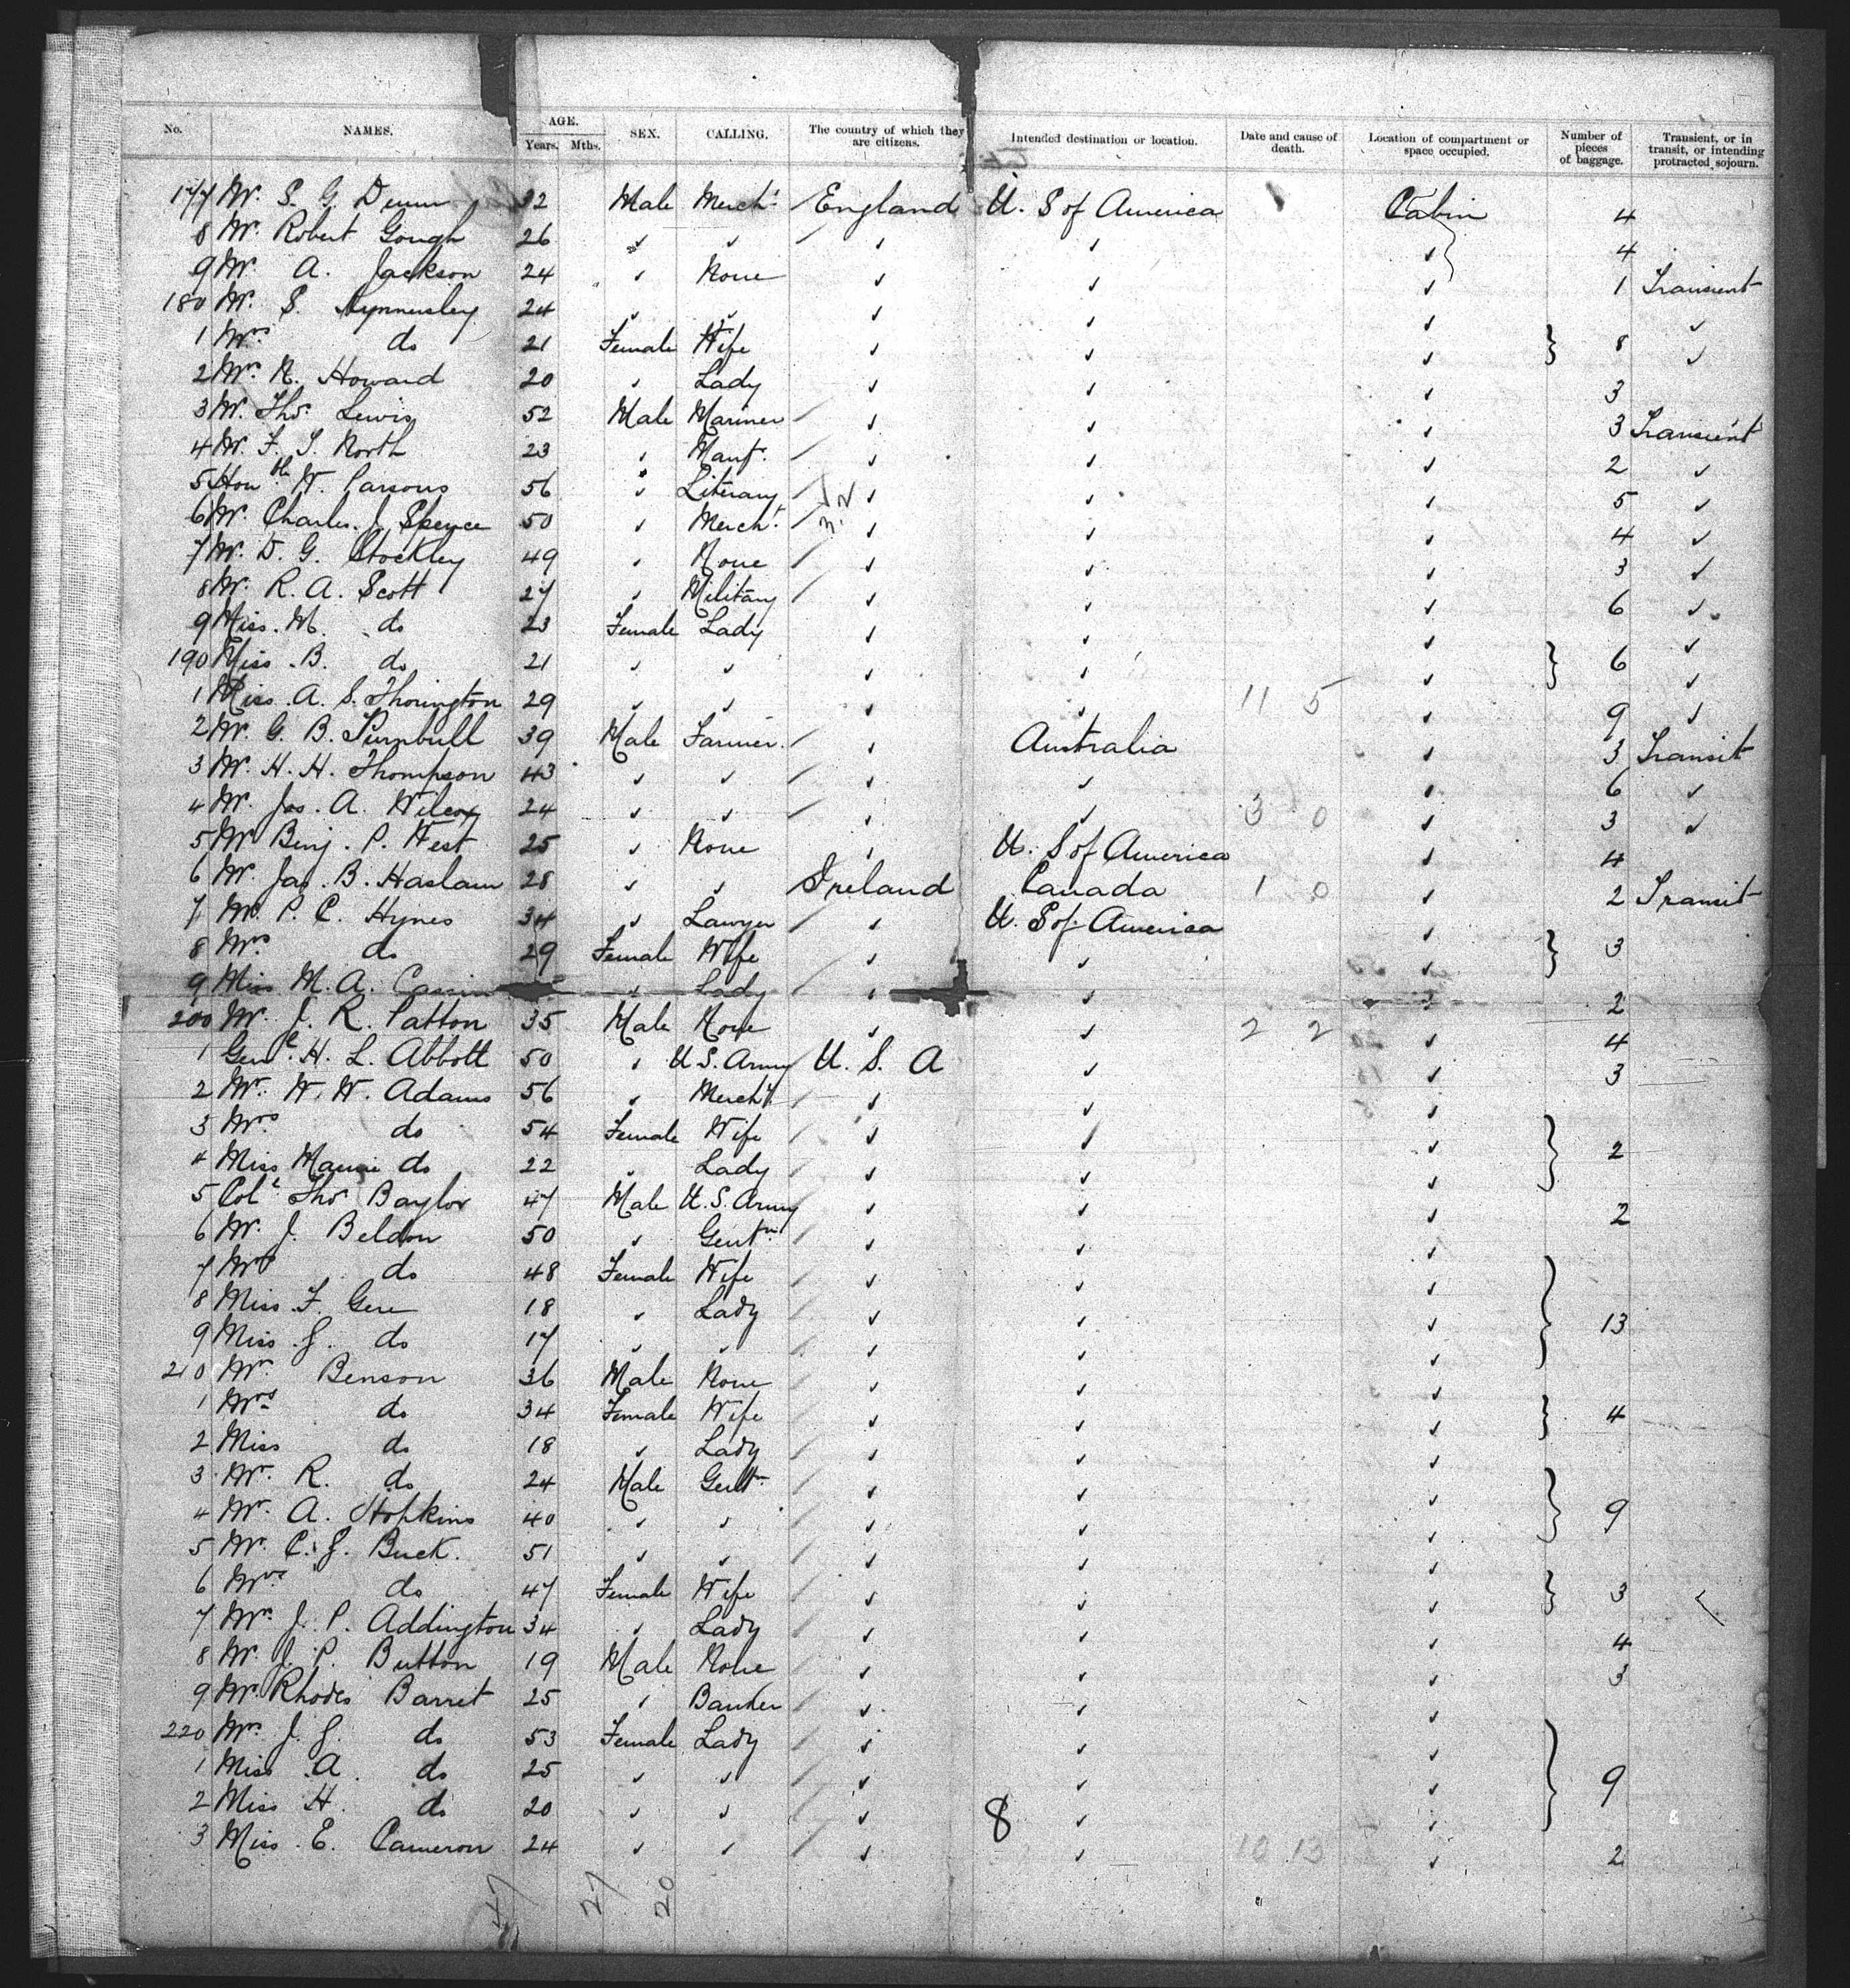 No. NAMES. AGE. Years. Mths. SEX. CALLING. The country of which they are citizens. Intended destination or location. Date and cause of death. Location of compartment or space occupied. Number of pieces of baggage. Transient, or in transit, or intending protracted sojourn.
177 Mr. S. G. 32 Male Mercht England U. S of America Cabin 4
8 Mr. Robert Gough 26 " " " " " 4
9 Mr. A. Jackson 24 " None " " " 1 Transient
180 Mr. S. 24 " " " " " "
1 Mrs do 21 Female Wife " " " } 8 "
2 Mrs. R. Howard 20 " Lady " " " 3
3 Mr. Thos. Lewis 52 Male Mariner " " " 3 Transient
4 Mr. F. S. North 23 " Manfr. " " " 2 "
5 Honble W. Parsons 56 " Literary " " " 5 "
6 Mr. Charles J. Spence 50 " Mercht " " " 4 "
7 Mr. D. G. Stockley 49 " None " " " 3 "
8 Mr. R. A. Scott 27 " Military " " " 6 "
9 Miss. M. do 23 Female Lady " " " "
190 Miss. B. do 21 " " " " " } 6 "
1 Miss. A. S. Thorington 29 " " " " 11 5 " 9 "
2 Mr. G. B. Turnbull 39 Male Farmer. " Australia " 3 Transit
3 Mr. H. H. Thompson 43 " " " " " 6 "
4 Mr. Jas. A. Wilcox 24 " " " " 3 0 " 3 "
5 Mr Benj. P. West 25 " None " U. S of America " 4
6 Mr. Jas. B. Haslam 28 " " Ireland Canada 1 0 " 2 Transit
7 Mr. P. C. Hynes 34 " Lawyer " U. S of America "
8 Mrs do 29 Female Wife " " " } 3
9 Miss M. A. " Lady " " " 2
200 Mr. J. R. Patton 35 Male None " " 2 2 " 4
1 Genl. H. L. Abbott 50 " U S. Army U. S. A " " 3
2 Mr. W. W. Adams 56 " Mercht. " " "
3 Mrs. do 54 Female Wife " " " } 2
4 Miss Mamie do 22 " Lady " " "
5 Coll Thos. Baylor 47 Male U. S. Army " " " 2
6 Mr. J. Beldon 50 " Gentn " " "
7 Mrs do 48 Female Wife " " "
8 Miss. F. Gere 18 " Lady " " " } 13
9 Miss. G. do 17 " " " " "
210 Mr. Benson 36 Male None " " "
1 Mrs do 34 Female Wife " " " } 4
2 Miss do 18 " Lady " " "
3 Mr. R. do 24 Male Gentn " " "
4 Mr. A. Hopkins 40 " " " " " } 9
5 Mr. C. G. Buck. 51 " " " " "
6 Mrs do 47 Female Wife " " " } 3
7 Mrs. J. P. Addington 34 " Lady " " " 4
8 Mr. J. P. Button 19 Male None " " " 3
9 Mr. Rhodes Barret 25 " Banker " " "
220 Mrs. J. G. do 53 Female Lady " " "
1 Miss A. do 25 " " " " " } 9
2 Miss H. do 20 " " " 8 " "
3 Miss. E. Cameron 24 " " " " 10 13 " 2
47 27 20